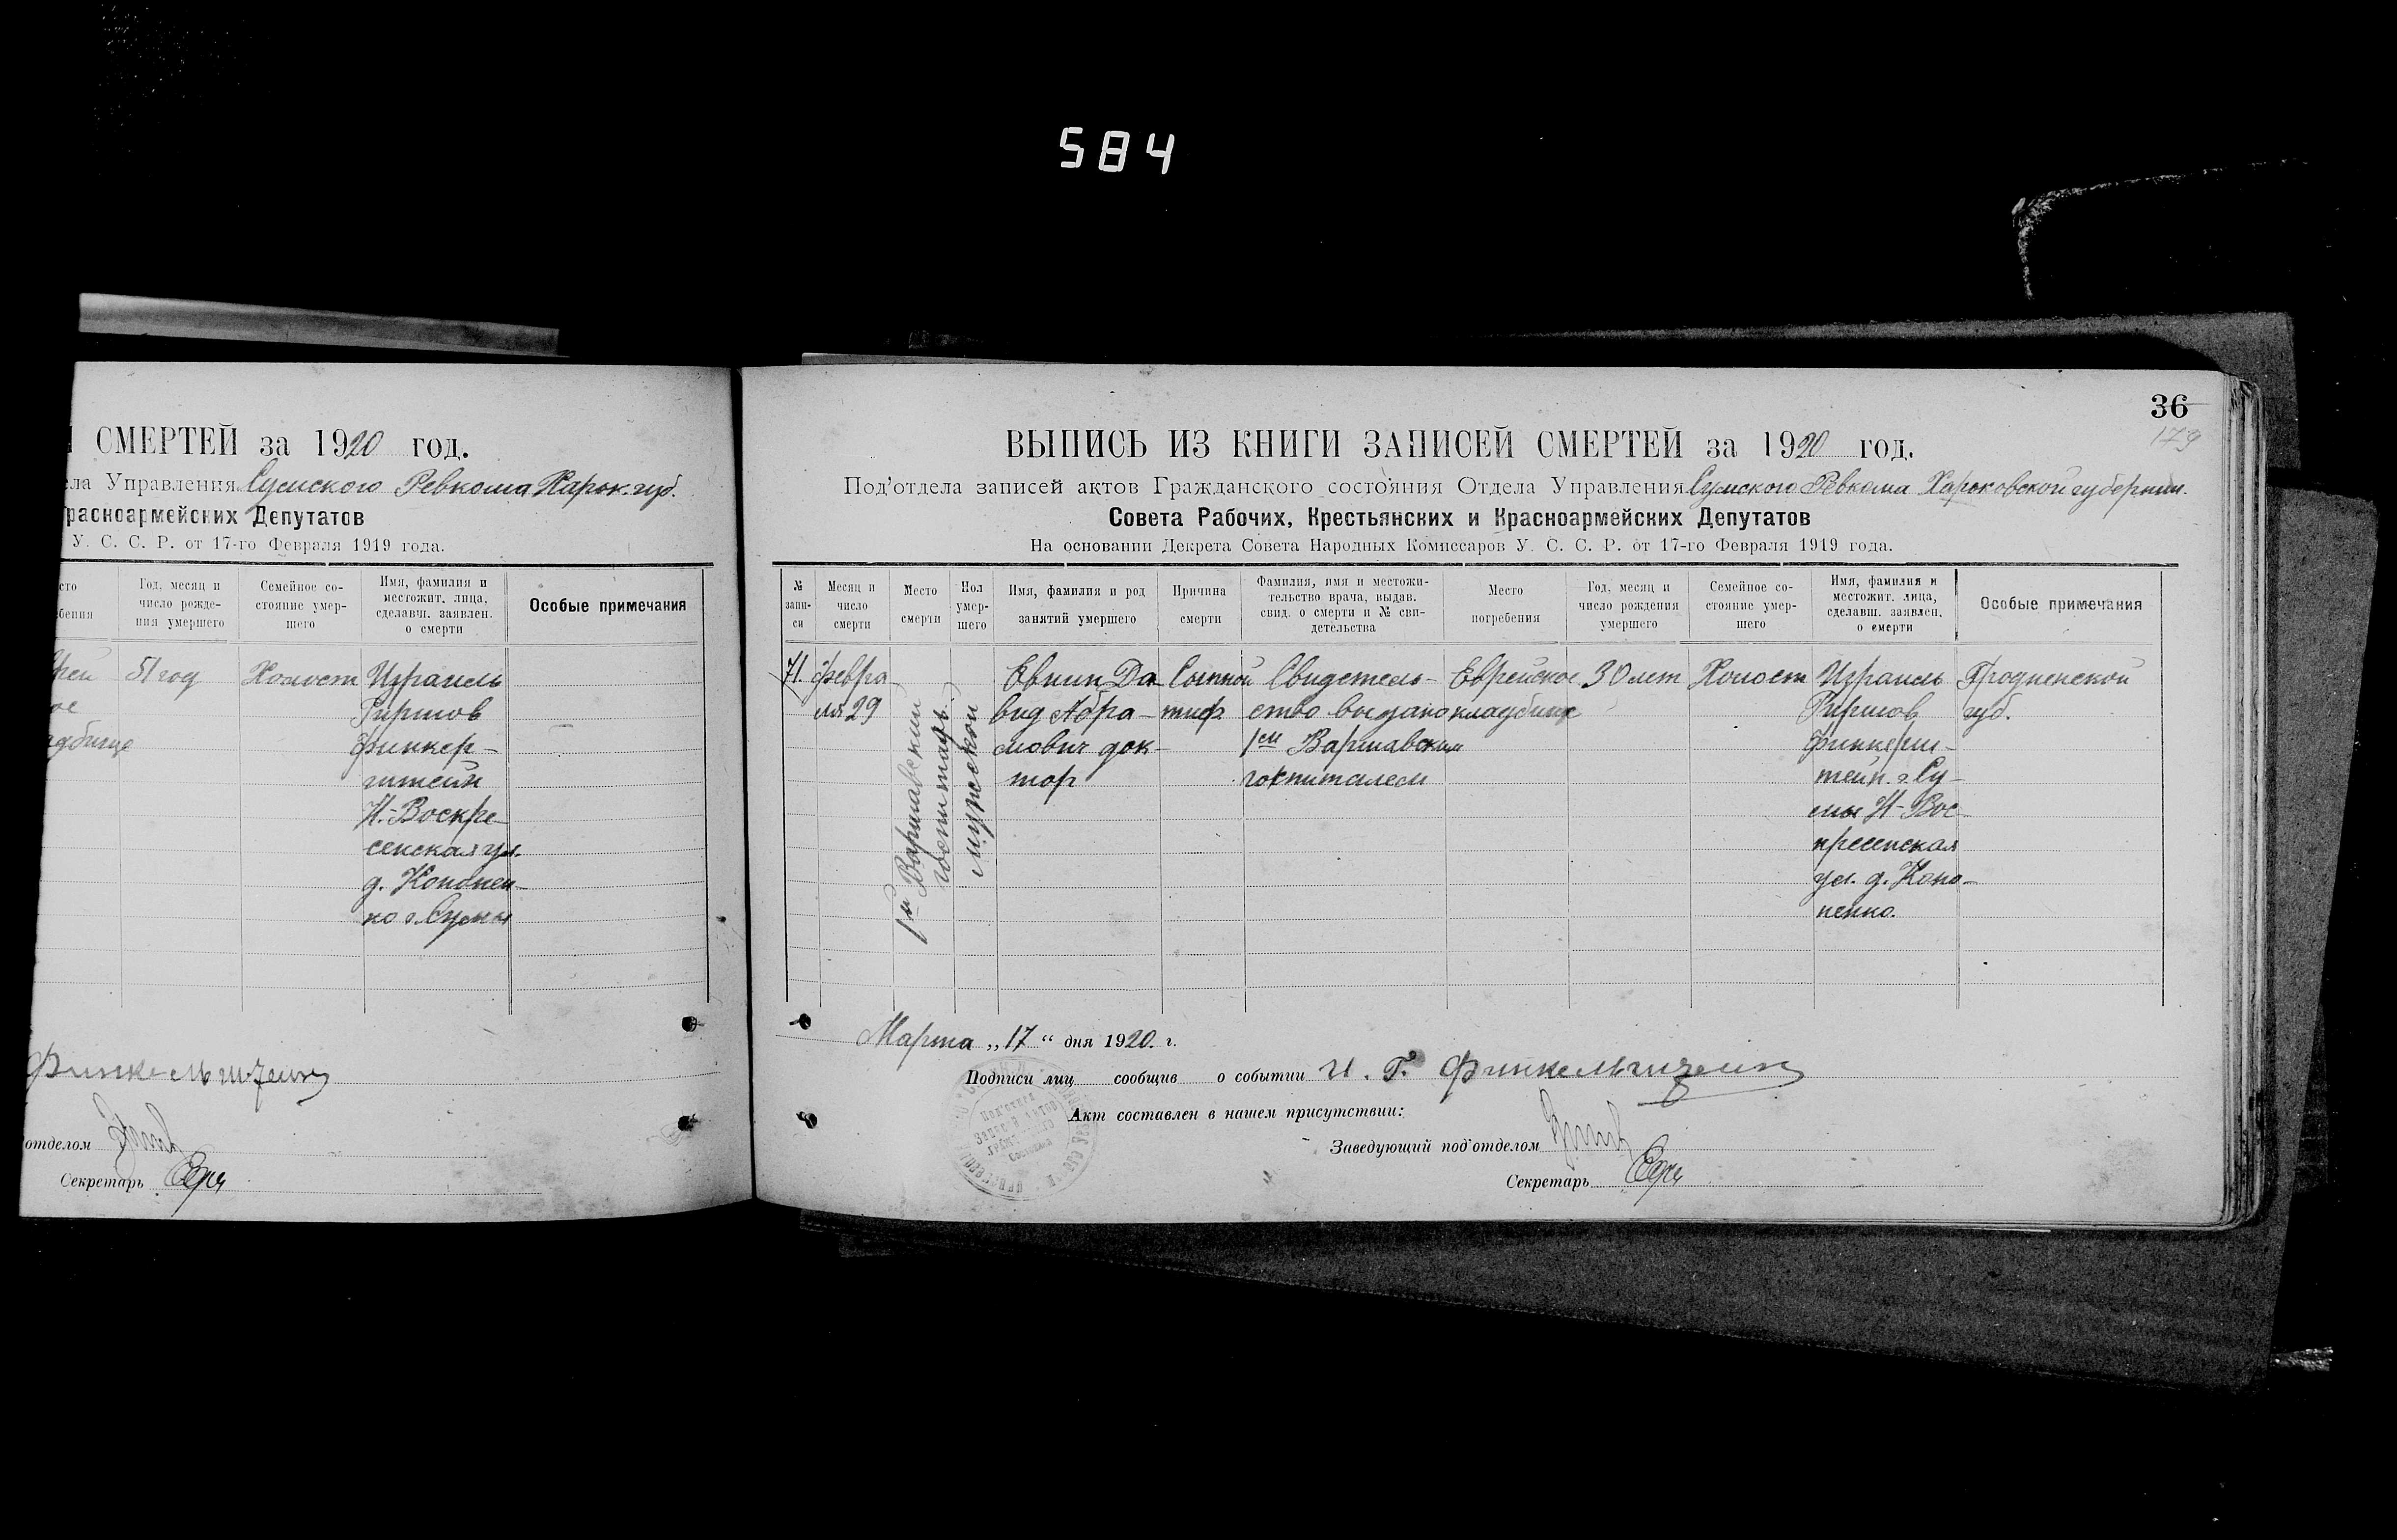 584
СМЕРТЕЙ за 1920 год.
ела Управления Сумского Ревкома Харьк. губ.
расноармейских Депутатов
У. С. С. Р. от 17-го Февраля 1919 года.
сто
бения
Год, месяц и
число рожде-
ния умершего
Семейное со-
стояние умер-
шего
Имя, фамилия и
местожит. лица,
сделавш. заявлен.
о смерти
Особые примечания
рей
ое
адбище
51 год
Холост
Израиль
Гиршов
Финкер-
штейн
Н.-Воскре-
сенская ул.
д. Кононен-
ко г. Сумы
Финкельштейн
отделом
Секретарь
36
179
ВЫПИСЬ ИЗ КНИГИ ЗАПИСЕЙ СМЕРТЕЙ за 1920 год.
Под'отдела записей актов Гражданского состояния Отдела Управления Сумского Ревкома Харьковской губернии.
Совета Рабочих, Крестьянских и Красноармейских Депутатов
На основании Декрета Совета Народных Комиссаров У. С. С. Р. от 17-го Февраля 1919 года.
№
запи-
си
Месяц и
число
смерти
Место
смерти
Пол
умер-
шего
Имя, фамилия и род
занятий умершего
Причина
смерти
Фамилия, имя и местожи-
тельство врача, выдав.
свид. о смерти и № сви-
детельства
Место
погребения
Год, месяц и
число рождения
умершего
Семейное со-
стояние умер-
шего
Имя, фамилия и
местожит. лица,
сделавш. заявлен.
о смерти
Особые примечания
71.
Февра-
ля 29
1й Варшавский
госпиталь
мужской
Евнин Да-
вид Абра-
мович док-
тор
Сыпной
тиф
Свидетель-
ство выдано
1ем Варшавским
госпиталем
Еврейское
кладбище
30 лет
Холост
Израиль
Гиршов
Финкерш-
тейн. г. Су-
мы Н-Вос-
кресенская
ул. д. Коно-
ненко.
Гродненской
губ.
Марта „17“ дня 1920. г.
Подписи лиц сообщив о событии И. Г. Финкельштейн
Акт составлен в нашем присутствии:
Заведующий под'отделом
Секретарь